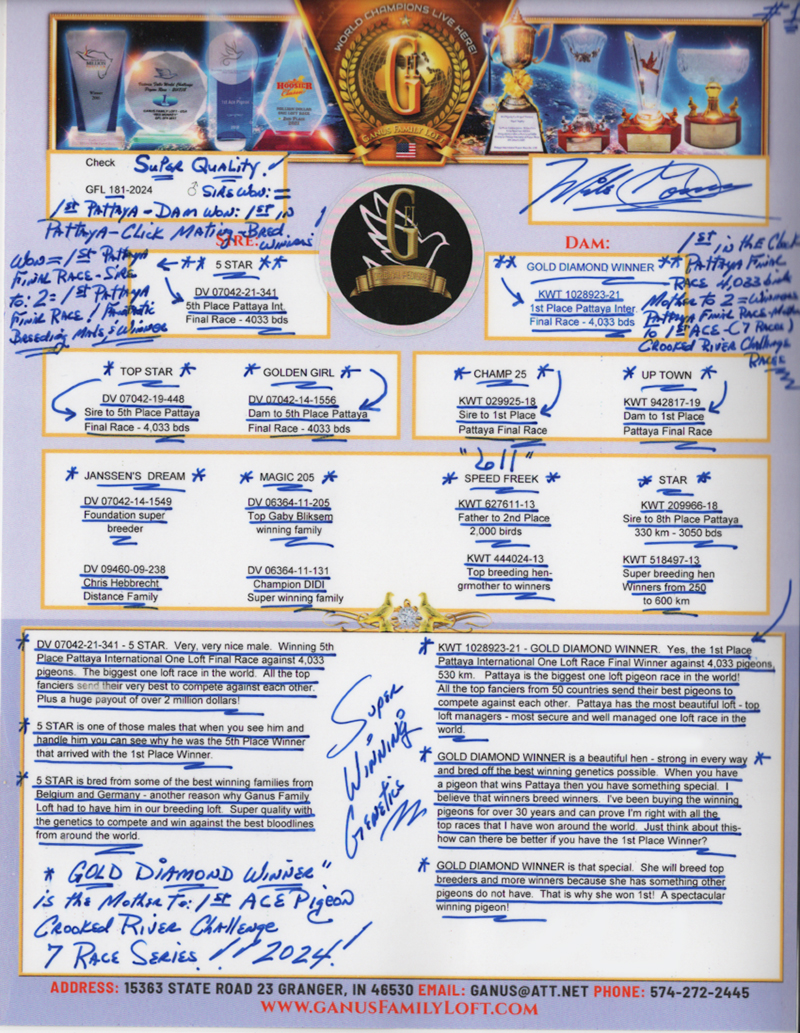 #1
WORLD CHAMPIONS LIVE HERE!
G
GANUS FAMILY LOFT
HOOSIER
Check SUPER QUALITY!
GFL 181-2024 ♂ SIRE WON:=
1ST PATTAYA - DAM WON: 1ST IN
PATTAYA - CLICK MATING - BRED
WINNERS!
WON = 1ST PATTAYA
FINAL RACE - SIRE
TO: 2 = 1ST PATTAYA
FINAL RACE! FANTASTIC
BREEDING MALE & WINNER
SIRE:
** 5 STAR **
DV 07042-21-341
5th Place Pattaya Int.
Final Race - 4033 bds
DAM:
** GOLD DIAMOND WINNER **
KWT 1028923-21
1st Place Pattaya Inter.
Final Race - 4,033 bds
1ST IN THE CLOCK
PATTAYA FINAL
RACE 4,033 birds
MOTHER TO 2 = WINNERS
PATTAYA FINAL RACE - MOTHER
TO 1ST ACE - (7 RACES)
CROOKED RIVER CHALLENGE
RACE
* TOP STAR *
DV 07042-19-448
Sire to 5th Place Pattaya
Final Race - 4,033 bds
* GOLDEN GIRL *
DV 07042-14-1556
Dam to 5th Place Pattaya
Final Race - 4033 bds
* CHAMP 25 *
KWT 029925-18
Sire to 1st Place
Pattaya Final Race
* UP TOWN *
KWT 942817-19
Dam to 1st Place
Pattaya Final Race
* JANSSEN'S DREAM *
DV 07042-14-1549
Foundation super
breeder
DV 09460-09-238
Chris Hebbrecht
Distance Family
* MAGIC 205 *
DV 06364-11-205
Top Gaby Bliksem
winning family
DV 06364-11-131
Champion DIDI
Super winning family
"611"
* SPEED FREEK *
KWT 627611-13
Father to 2nd Place
2,000 birds
KWT 444024-13
Top breeding hen-
grmother to winners
* STAR *
KWT 209966-18
Sire to 8th Place Pattaya
330 km - 3050 bds
KWT 518497-13
Super breeding hen
Winners from 250
to 600 km
* DV 07042-21-341 - 5 STAR. Very, very nice male. Winning 5th
Place Pattaya International One Loft Final Race against 4,033
pigeons. The biggest one loft race in the world. All the top
fanciers send their very best to compete against each other.
Plus a huge payout of over 2 million dollars!
* 5 STAR is one of those males that when you see him and
handle him you can see why he was the 5th Place Winner
that arrived with the 1st Place Winner.
* 5 STAR is bred from some of the best winning families from
Belgium and Germany - another reason why Ganus Family
Loft had to have him in our breeding loft. Super quality with
the genetics to compete and win against the best bloodlines
from around the world.
* GOLD DIAMOND WINNER"
is the Mother To: 1ST ACE Pigeon
Crooked River Challenge
7 RACE SERIES!! 2024!
SUPER
WINNING
GENETICS
* KWT 1028923-21 - GOLD DIAMOND WINNER. Yes, the 1st Place
Pattaya International One Loft Race Final Winner against 4,033 pigeons,
530 km. Pattaya is the biggest one loft pigeon race in the world!
All the top fanciers from 50 countries send their best pigeons to
compete against each other. Pattaya has the most beautiful loft - top
loft managers - most secure and well managed one loft race in the
world.
* GOLD DIAMOND WINNER is a beautiful hen - strong in every way *
and bred off the best winning genetics possible. When you have
a pigeon that wins Pattaya then you have something special. I
believe that winners breed winners. I've been buying the winning
pigeons for over 30 years and can prove I'm right with all the
top races that I have won around the world. Just think about this-
how can there be better if you have the 1st Place Winner?
* GOLD DIAMOND WINNER is that special. She will breed top
breeders and more winners because she has something other
pigeons do not have. That is why she won 1st! A spectacular
winning pigeon!
ADDRESS: 15363 STATE ROAD 23 GRANGER, IN 46530 EMAIL: GANUS@ATT.NET PHONE: 574-272-2445
WWW.GANUSFAMILYLOFT.COM